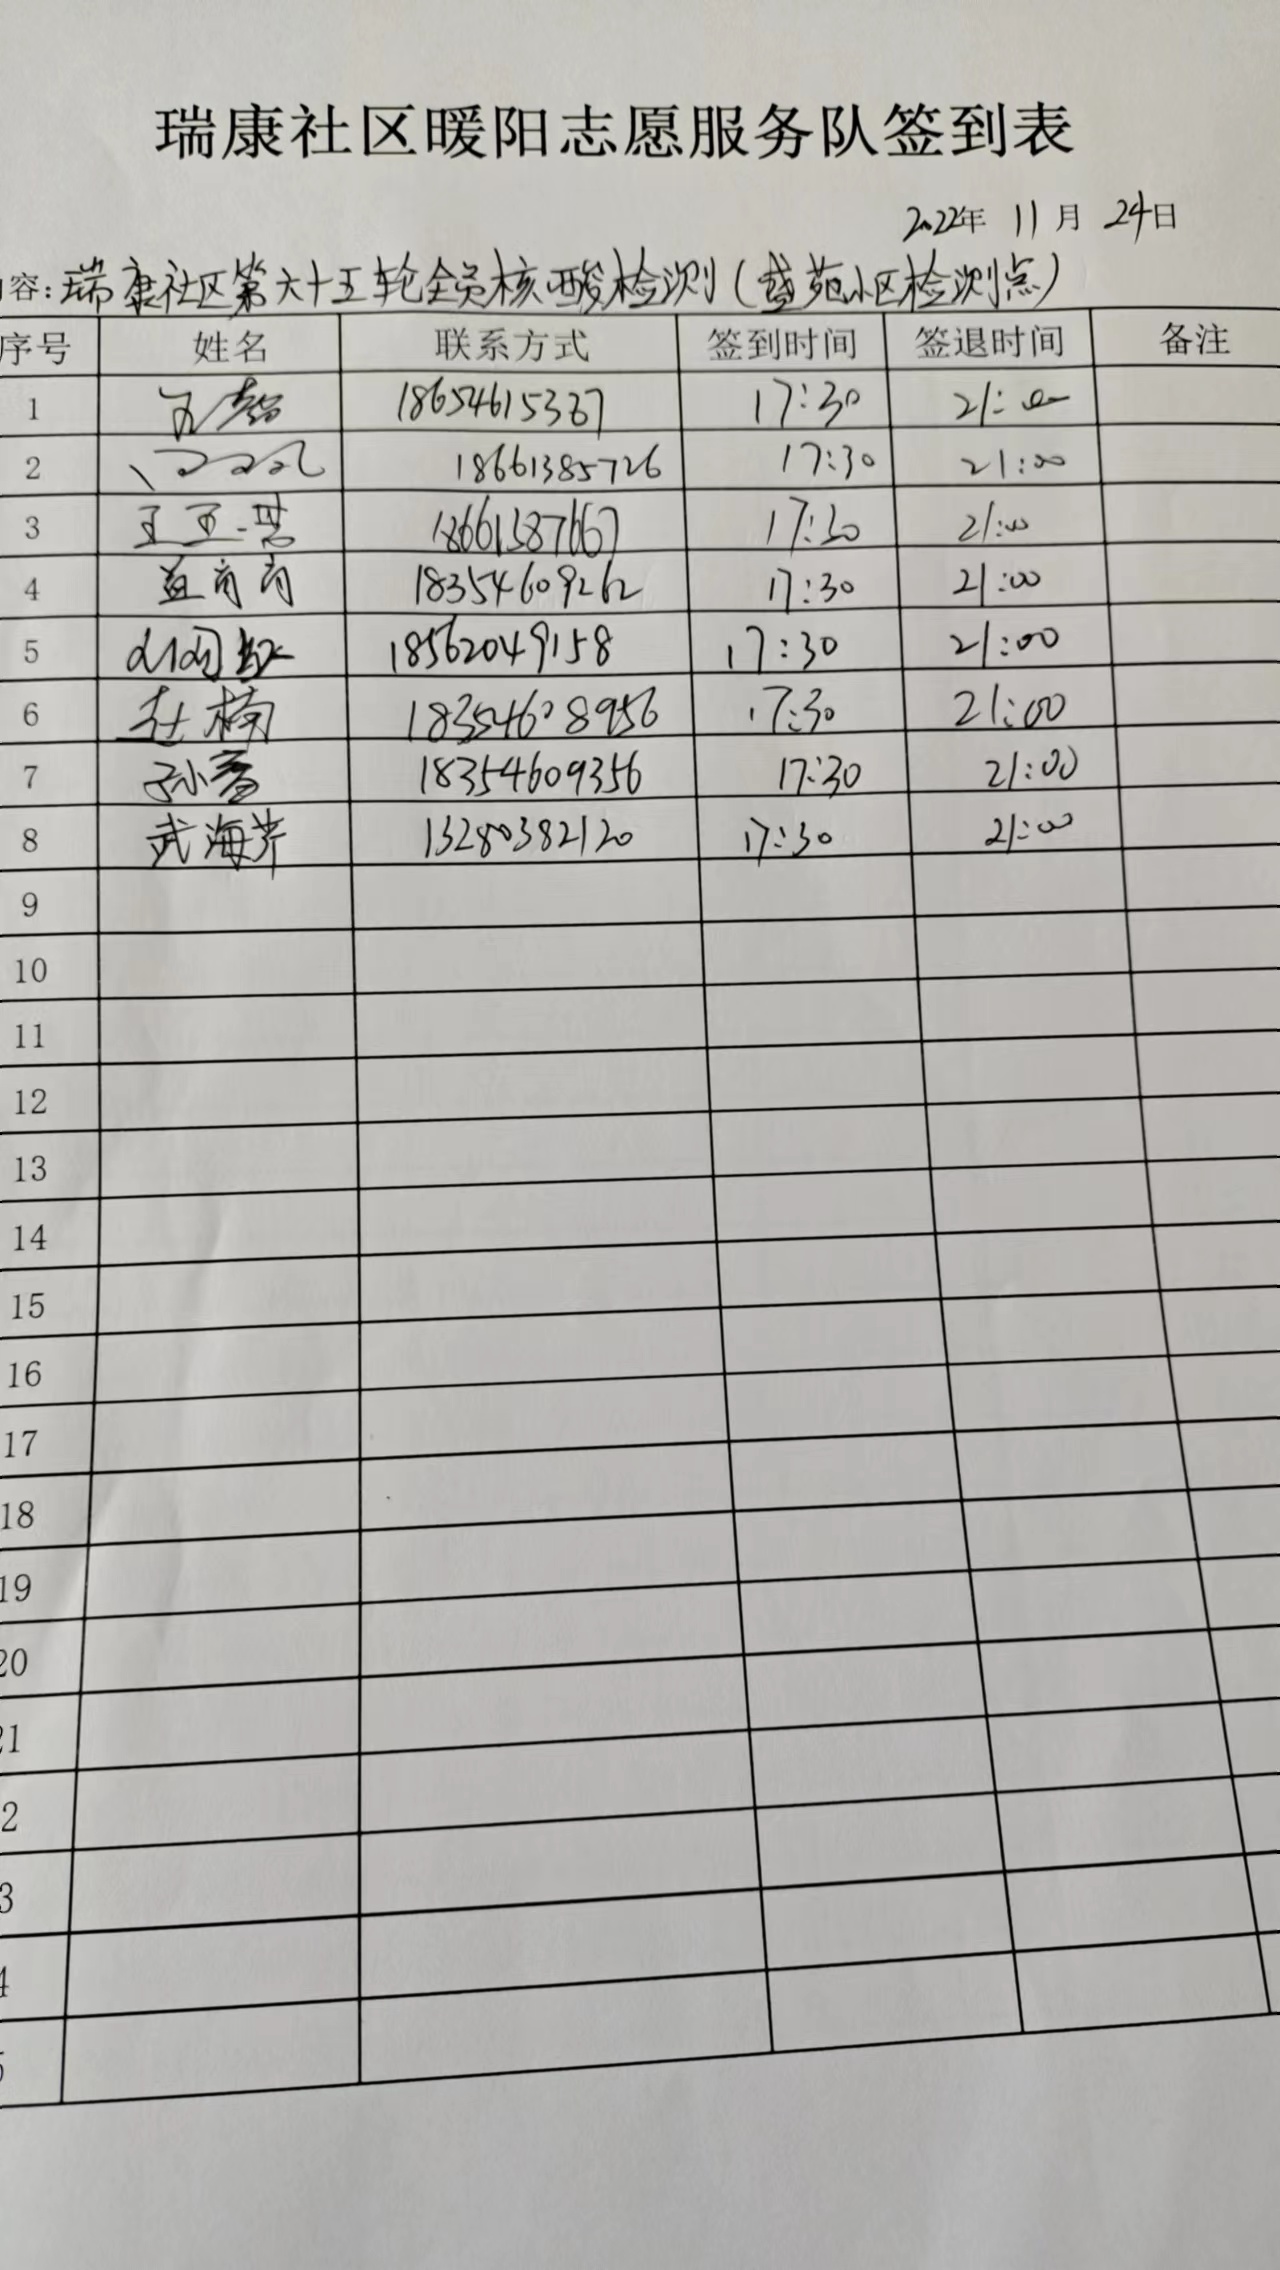 瑞康社区暖阳志愿服务队签到表
2022年 11月 24日
容：瑞康社区第六十五轮全员核酸检测（盛苑小区检测点）
序号 姓名 联系方式 签到时间 签退时间 备注
1 18654615367 17:30 21:00
2 18661385726 17:30 21:00
3 18661387667 17:30 21:00
4 18354609262 17:30 21:00
5 18562049158 17:30 21:00
6 杜楠 18354608956 17:30 21:00
7 孙小雪 18354609356 17:30 21:00
8 武海芹 13280382120 17:30 21:00
9
10
11
12
13
14
15
16
17
18
19
20
21
2
3
4
5